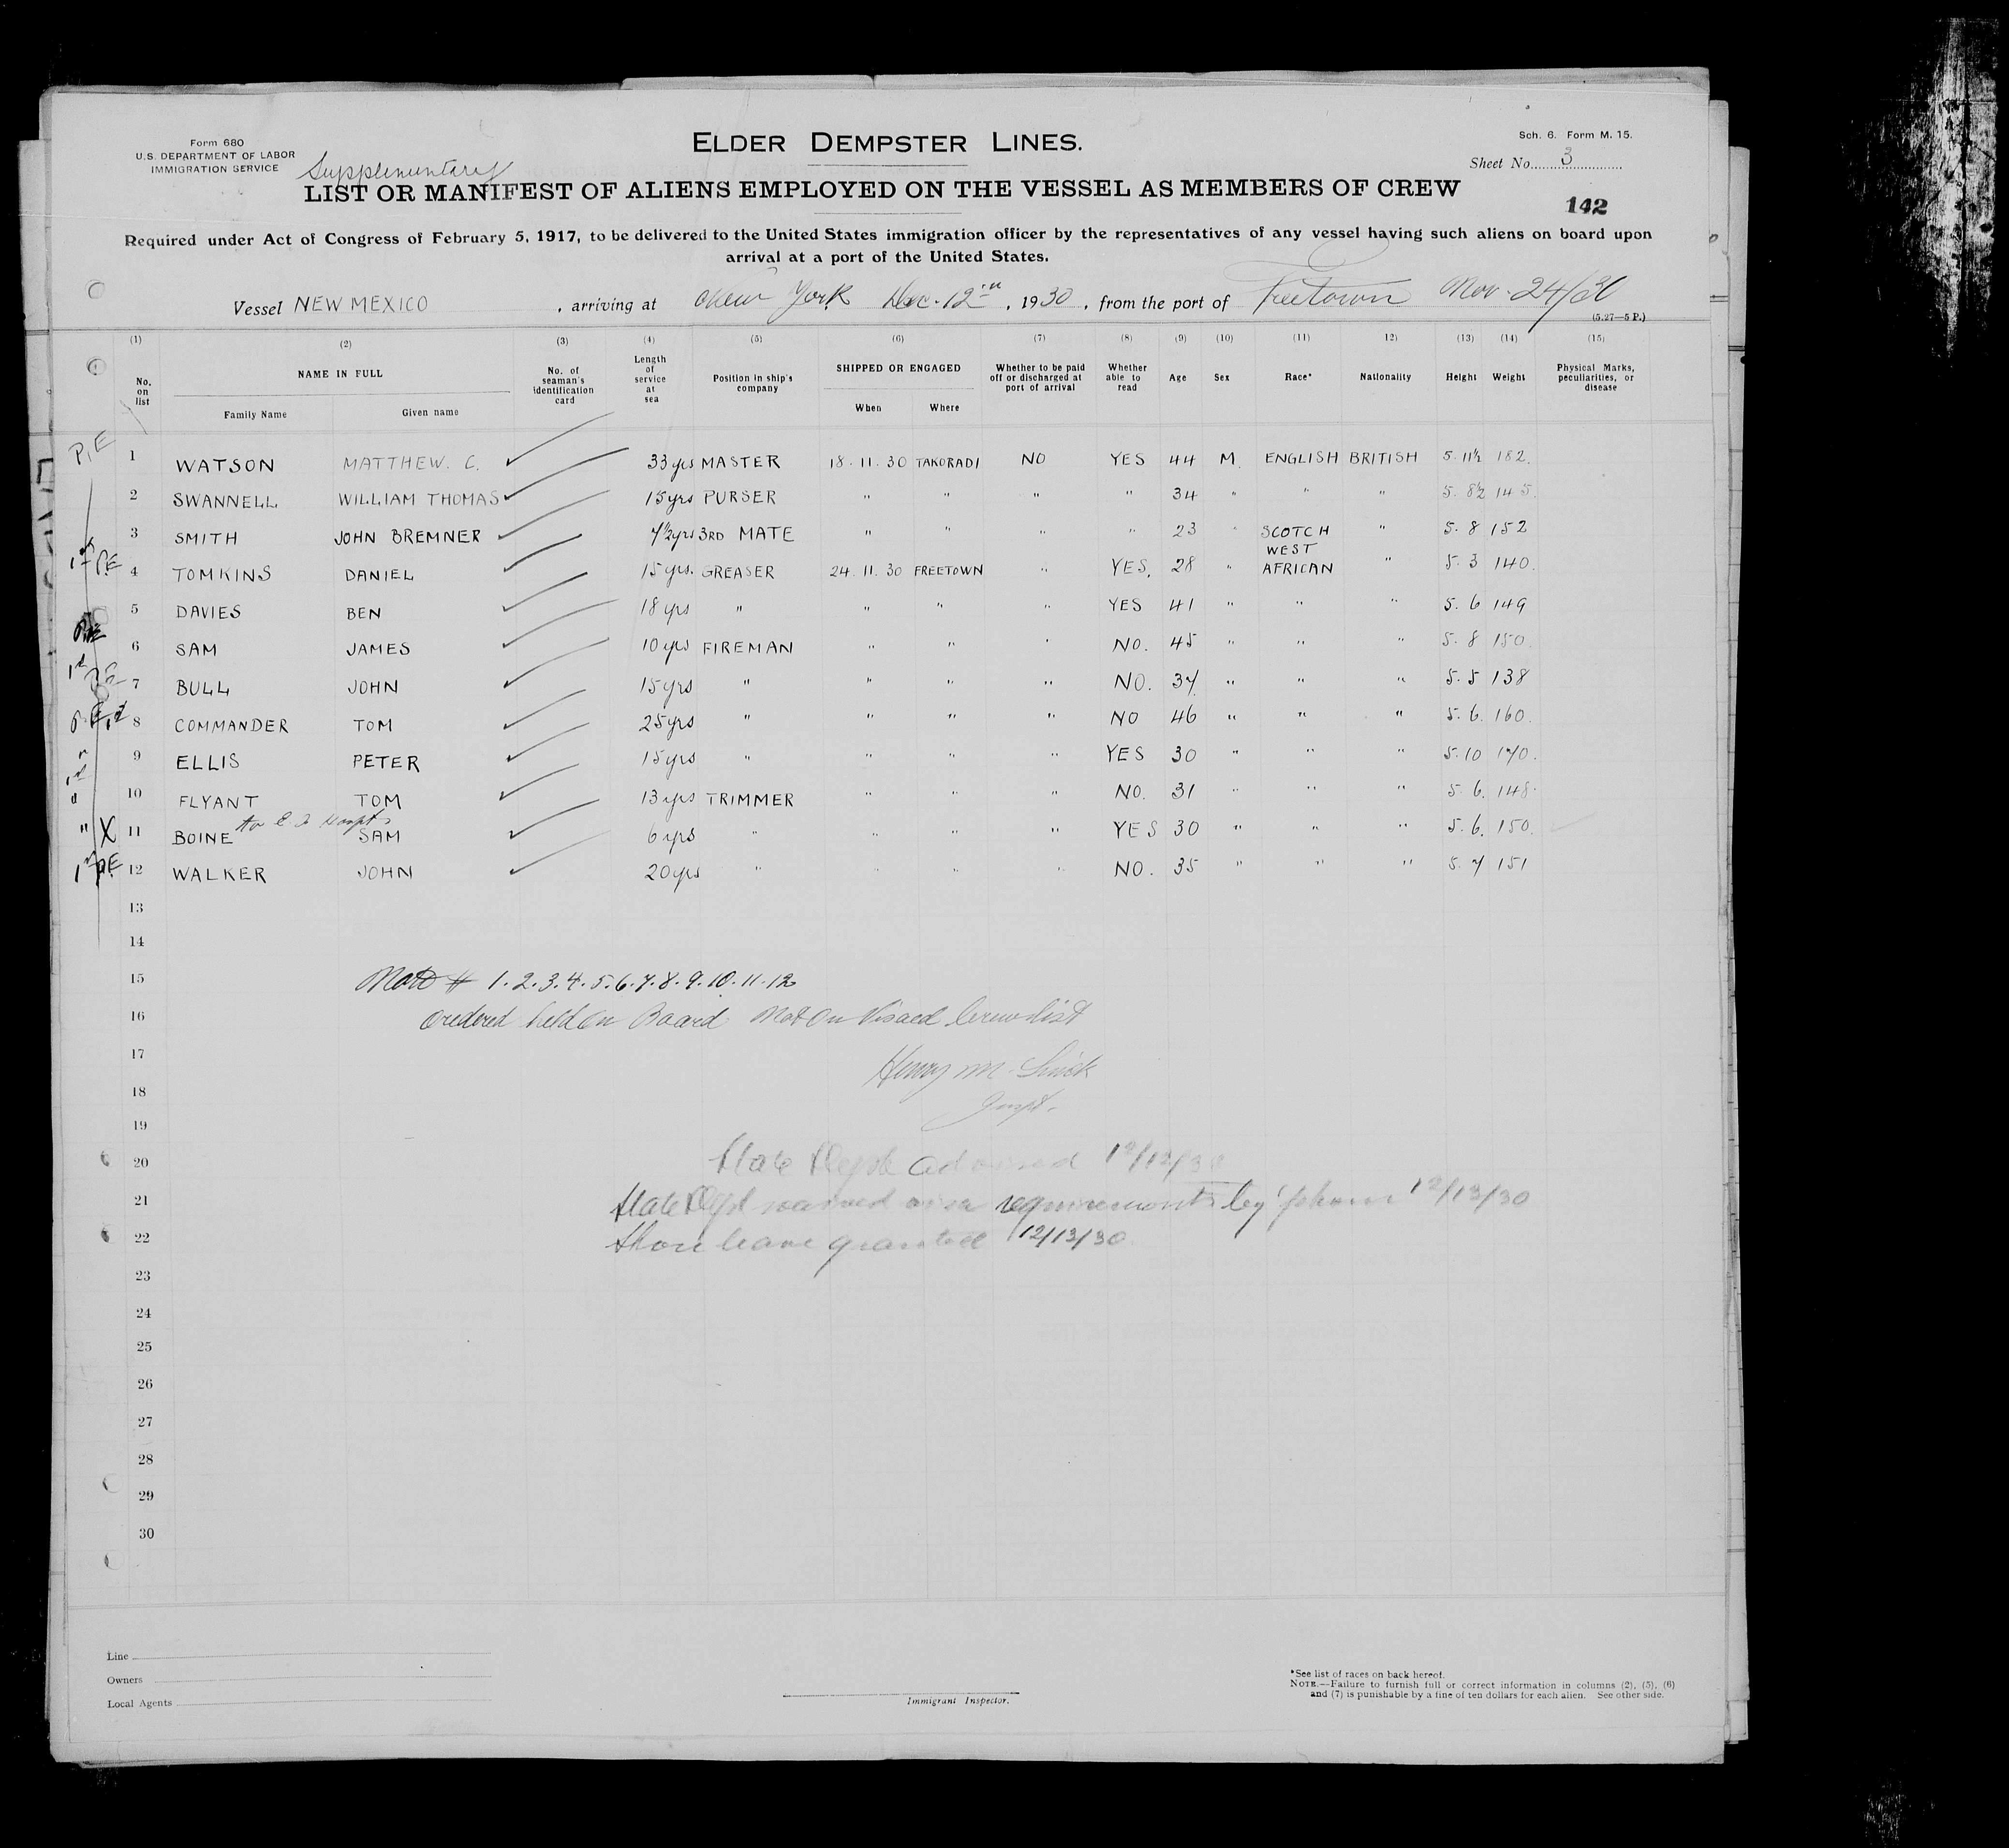 Form 680
U.S. DEPARTMENT OF LABOR
IMMIGRATION SERVICE
ELDER DEMPSTER LINES.
Sch. 6. Form M. 15.
Sheet No. 3
Supplementary
LIST OR MANIFEST OF ALIENS EMPLOYED ON THE VESSEL AS MEMBERS OF CREW
142
Required under Act of Congress of February 5, 1917, to be delivered to the United States immigration officer by the representatives of any vessel having such aliens on board upon
arrival at a port of the United States.
Vessel NEW MEXICO , arriving at New York Dec. 12th , 1930 , from the port of Freetown Nov. 24/30
(5.27—5 P.)
(1) (2) (3) (4) (5) (6) (7) (8) (9) (10) (11) 12) (13) (14) (15)
No. on list NAME IN FULL Family Name Given name No. of seaman's identification card Length of service at sea Position in ship's company SHIPPED OR ENGAGED When Where Whether to be paid off or discharged at port of arrival Whether able to read Age Sex Race* Nationality Height Weight Physical Marks, peculiarities, or disease
P.E 1 WATSON MATTHEW. C. 33 yrs MASTER 18.11.30 TAKORADI NO YES 44 M. ENGLISH BRITISH 5. 11½ 182.
2 SWANNELL WILLIAM THOMAS 15 yrs PURSER " " " " 34 " " " 5. 8½ 145.
3 SMITH JOHN BREMNER 7½ yrs 3RD MATE " " " " 23 " SCOTCH " 5. 8 152
4 TOMKINS DANIEL 15 yrs. GREASER 24.11.30 FREETOWN " YES. 28 " WEST AFRICAN " 5. 3 140.
5 DAVIES BEN 18 yrs " " " " YES 41 " " " 5. 6 149
6 SAM JAMES 10 yrs FIREMAN " " " NO. 45 " " " 5. 8 150.
7 BULL JOHN 15 yrs " " " " NO. 37 " " " 5. 5 138
8 COMMANDER TOM 25 yrs " " " " NO 46 " " " 5. 6. 160.
9 ELLIS PETER 15 yrs " " " " YES 30 " " " 5. 10 170.
10 FLYANT TOM 13 yrs TRIMMER " " " NO. 31 " " " 5. 6. 148.
" X 11 BOINE SAM 6 yrs " " " " YES 30 " " " 5. 6. 150.
12 WALKER JOHN 20 yrs " " " " NO. 35 " " " 5. 7 151
13
14
15 Note # 1.2.3.4.5.6.7.8.9.10.11.12
16 Ordered held on Board Not on Visaed Crew list
17 Henry M.
18 Inspt.
19
20 State Dept advised 12/12/30
21 State Dept waived visa requirements by phone 12/13/30
22 Shore leave granted 12/13/30
23
24
25
26
27
28
29
30
Line
Owners
Local Agents
Immigrant Inspector.
*See list of races on back hereof.
NOTE.—Failure to furnish full or correct information in columns (2), (5), (6)
and (7) is punishable by a fine of ten dollars for each alien. See other side.